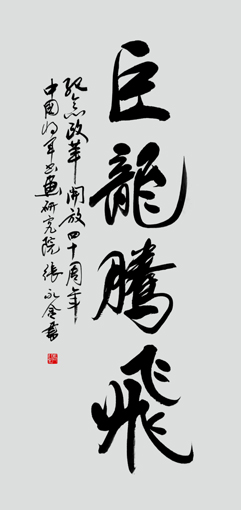 巨龍騰飛
纪念改革開放四十周年
中国将军书画研究院張永金書